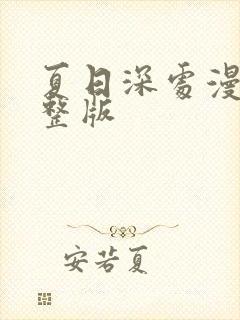 夏日深處漫
整版
安若夏